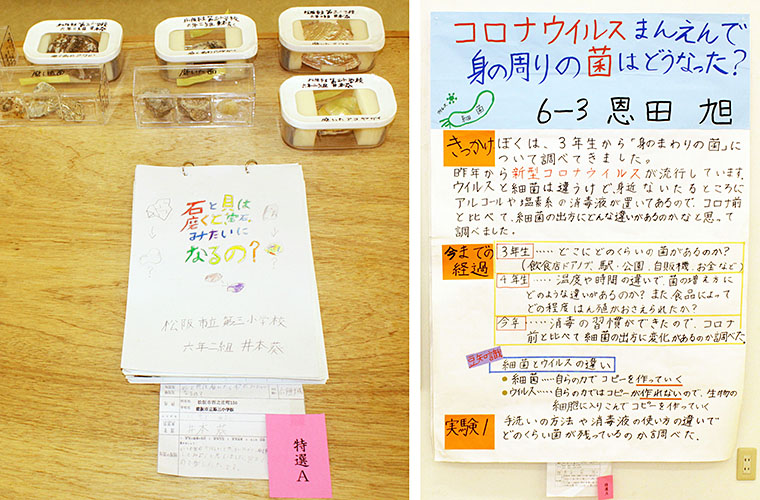 石と貝は
磨くと宝石
みたいに
なるの?
松阪市立第三小学校
六年二組 井本葵
特選A
コロナウイルスまんえんで
身の周りの菌はどうなった?
6-3 恩田 旭
細菌
きっかけ
ぼくは、3年生から「身のまわりの菌」に
ついて調べてきました。
昨年から新型コロナウイルスが流行しています。
ウイルスと細菌は違うけど、身近ないたるところに
アルコールや塩素系の消毒液が置いてあるので、コロナ前
と比べて、細菌の出方にどんな違いがあるのかなと思って
調べました。
今までの
経過
3年生……どこにどのくらいの菌があるのか?
(飲食店ドアノブ、駅・公園、自販機、お金など)
4年生……温度や時間の違いで、菌の増え方に
どのような違いがあるのか?また、食品によって
どの程度はん殖がおさえられたか?
今年……消毒の習慣ができたので、コロナ
前と比べて細菌の出方に変化があるのか調べた。
豆知識
細菌とウイルスの違い
細菌……自らの力でコピーを作っていく
ウイルス……自らの力ではコピーが作れないので、生物の
細胞に入りこんでコピーを作っていく
実験1
手洗いの方法や消毒液の使い方の違いで
どのくらい菌が残っているのか調べた。
特選A